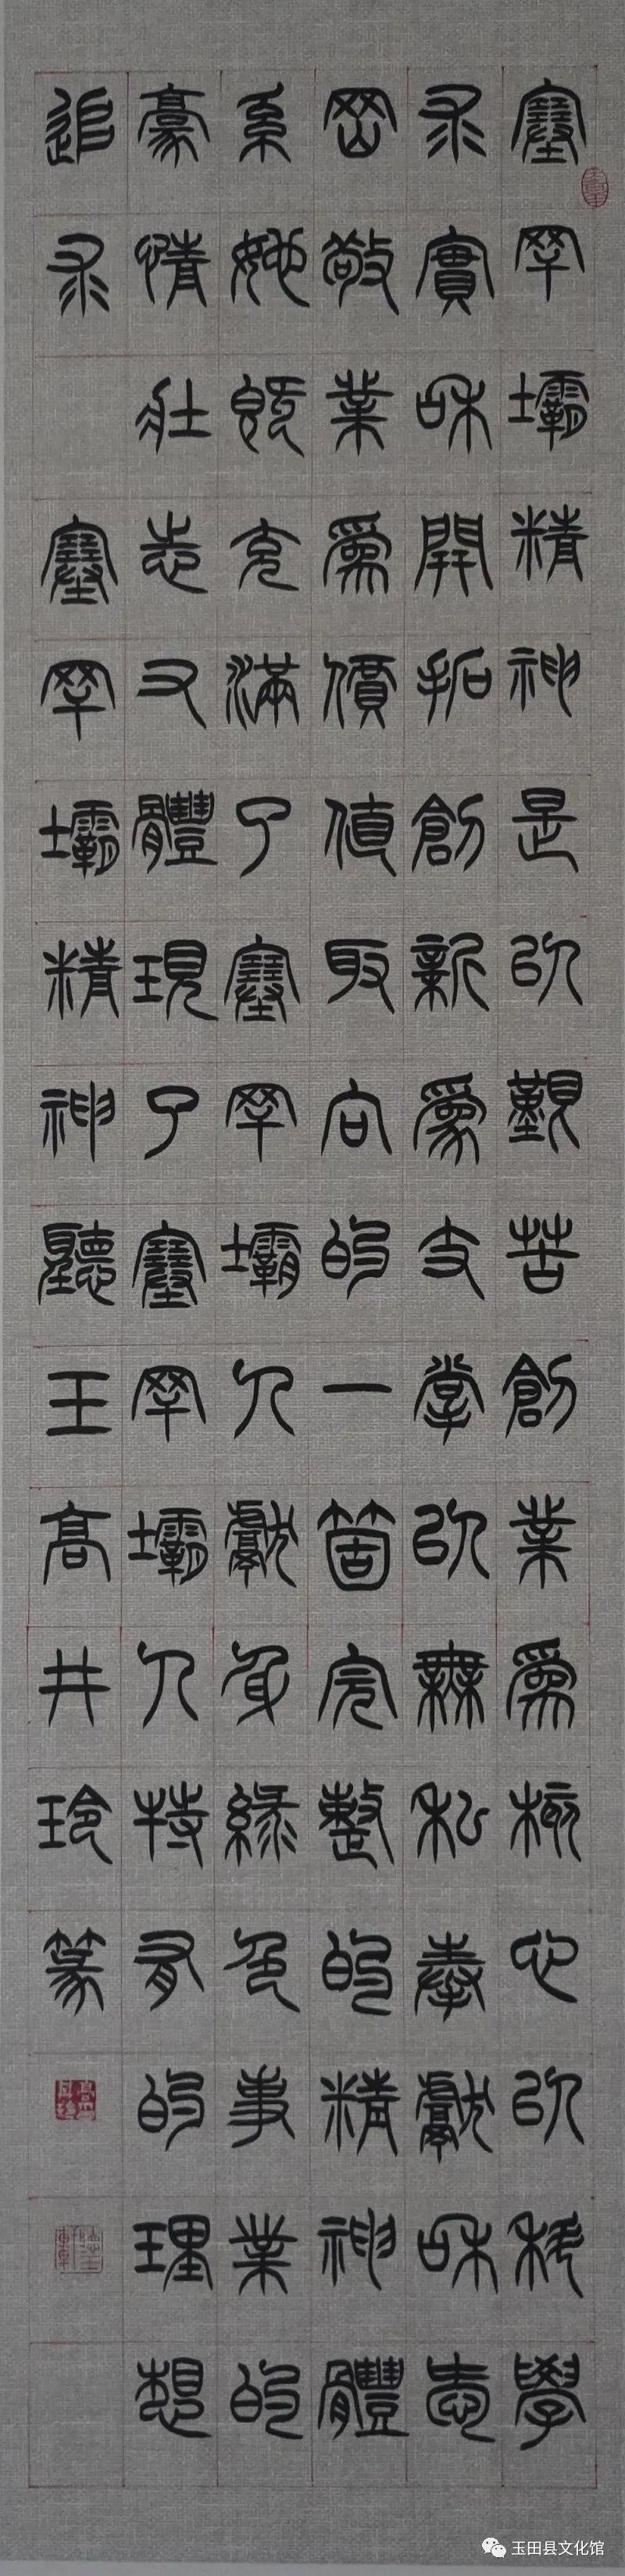 塞罕壩精神是以艱苦創業爲核心以科學
求實和開拓創新爲支掌以無私奉獻和愛
岡敬業爲價值取向的一箇完整的精神體
系她既充滿了塞罕壩人獻身綠色事業的
豪情壯志又體現了塞罕壩人特有的理想
追求 塞罕壩精神 聽玉高井玲篆
玉田县文化馆